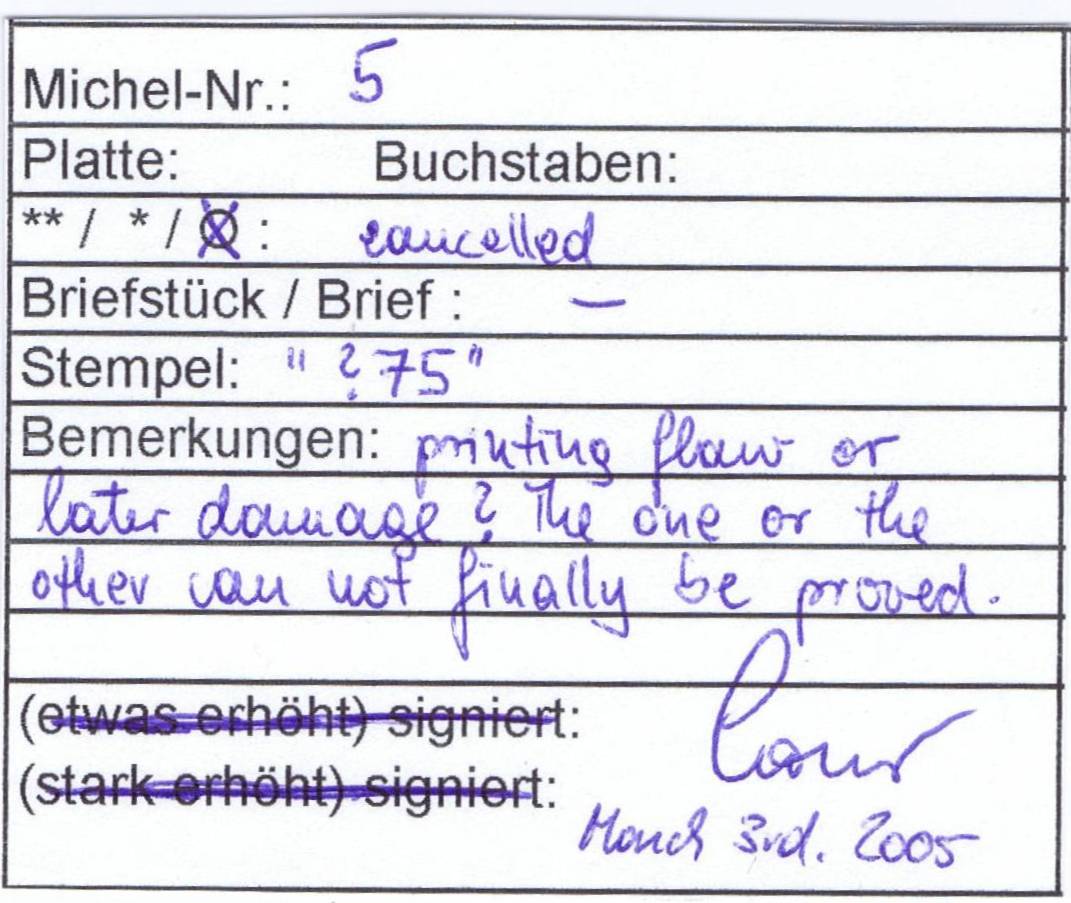 Michel-Nr.: 5
Platte: Buchstaben:
** / * / ⊗ : cancelled
Briefstück / Brief : —
Stempel: "?75"
Bemerkungen: printing flaw or
later damage? The one or the
other can not finally be prooved.
(etwas erhöht) signiert:
(stark erhöht) signiert:
March 3rd. 2005